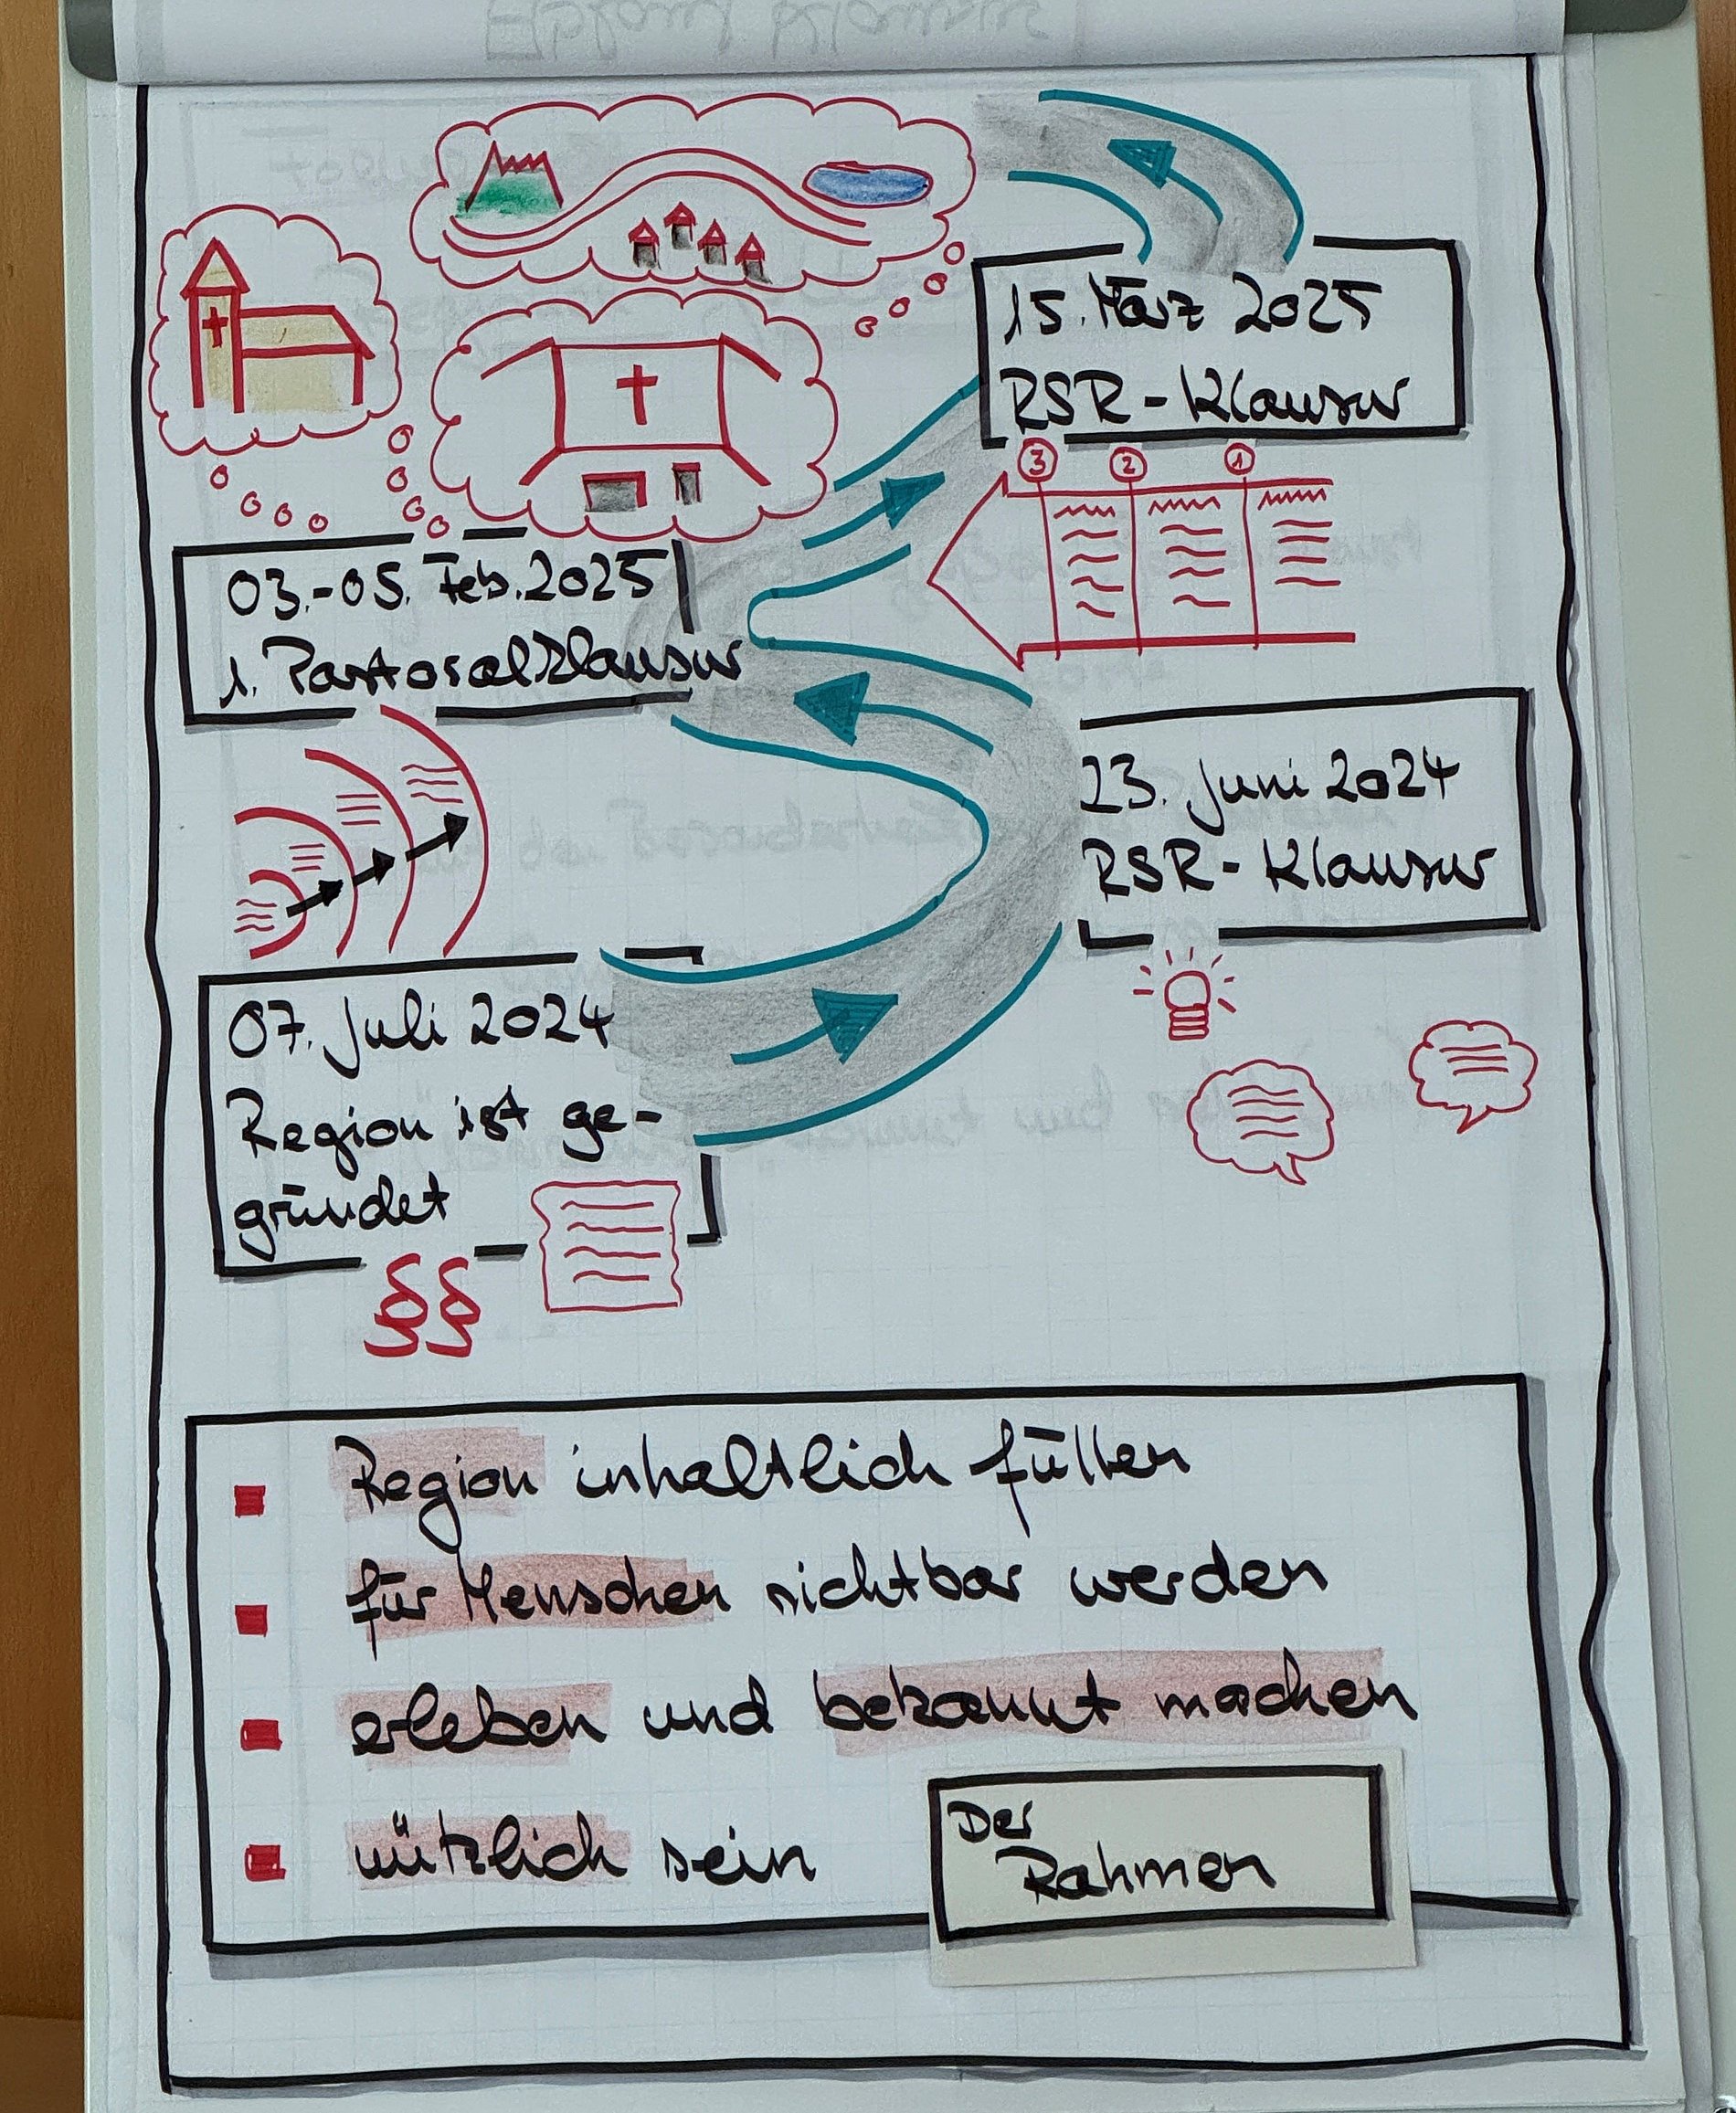 15. März 2025
RSR-Klausur
3 2 1
03.-05. Feb. 2025
1. Pastoralklausur
23. Juni 2024
RSR-Klausur
07. Juli 2024
Region ist ge-
gründet
§§
Region inhaltlich füllen
für Menschen sichtbar werden
erleben und bekannt machen
nützlich sein
Der
Rahmen